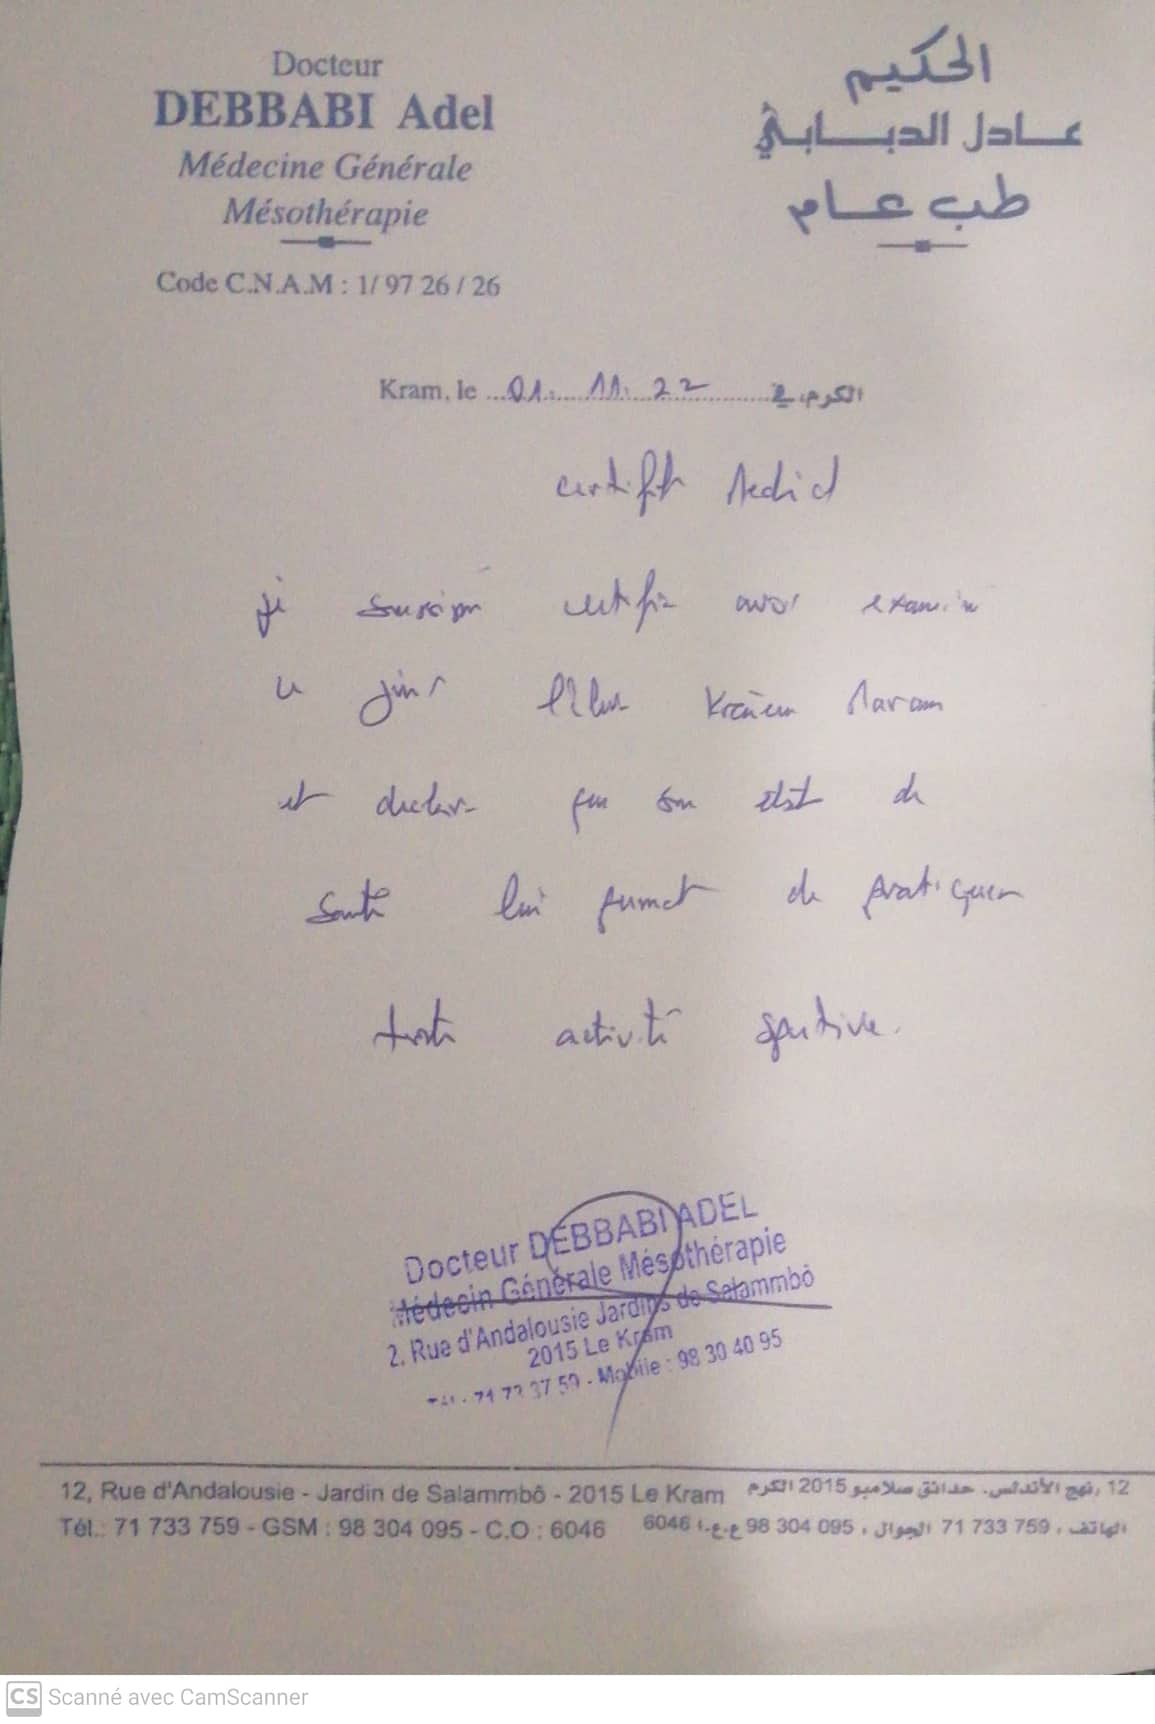 Docteur
DEBBABI Adel
Médecine Générale
Mésothérapie
Code C.N.A.M : 1/ 97 26 / 26
الحكيم
عادل الدبابي
طب عام
Kram, le 01. 11. 22 الكرم، في
certificat Medical
je soussigné certifie avoir examiné
ce jour l'élève Maram
et déclare que son état de
santé lui permet de pratiquer
toute activité sportive.
Docteur DEBBABI ADEL
Médecin Générale Mésothérapie
2. Rue d'Andalousie Jardins de Salammbô
2015 Le Kram
71 73 37 59 - Mobile : 98 30 40 95
12, Rue d'Andalousie - Jardin de Salammbô - 2015 Le Kram
12, نهج الأندلس. حدائق صلامبو 2015 الكرم
Tél.: 71 733 759 - GSM : 98 304 095 - C.O : 6046
الهاتف، 71 733 759 الجوال، 98 304 095 ع.ع.ا 6046
CS Scanné avec CamScanner